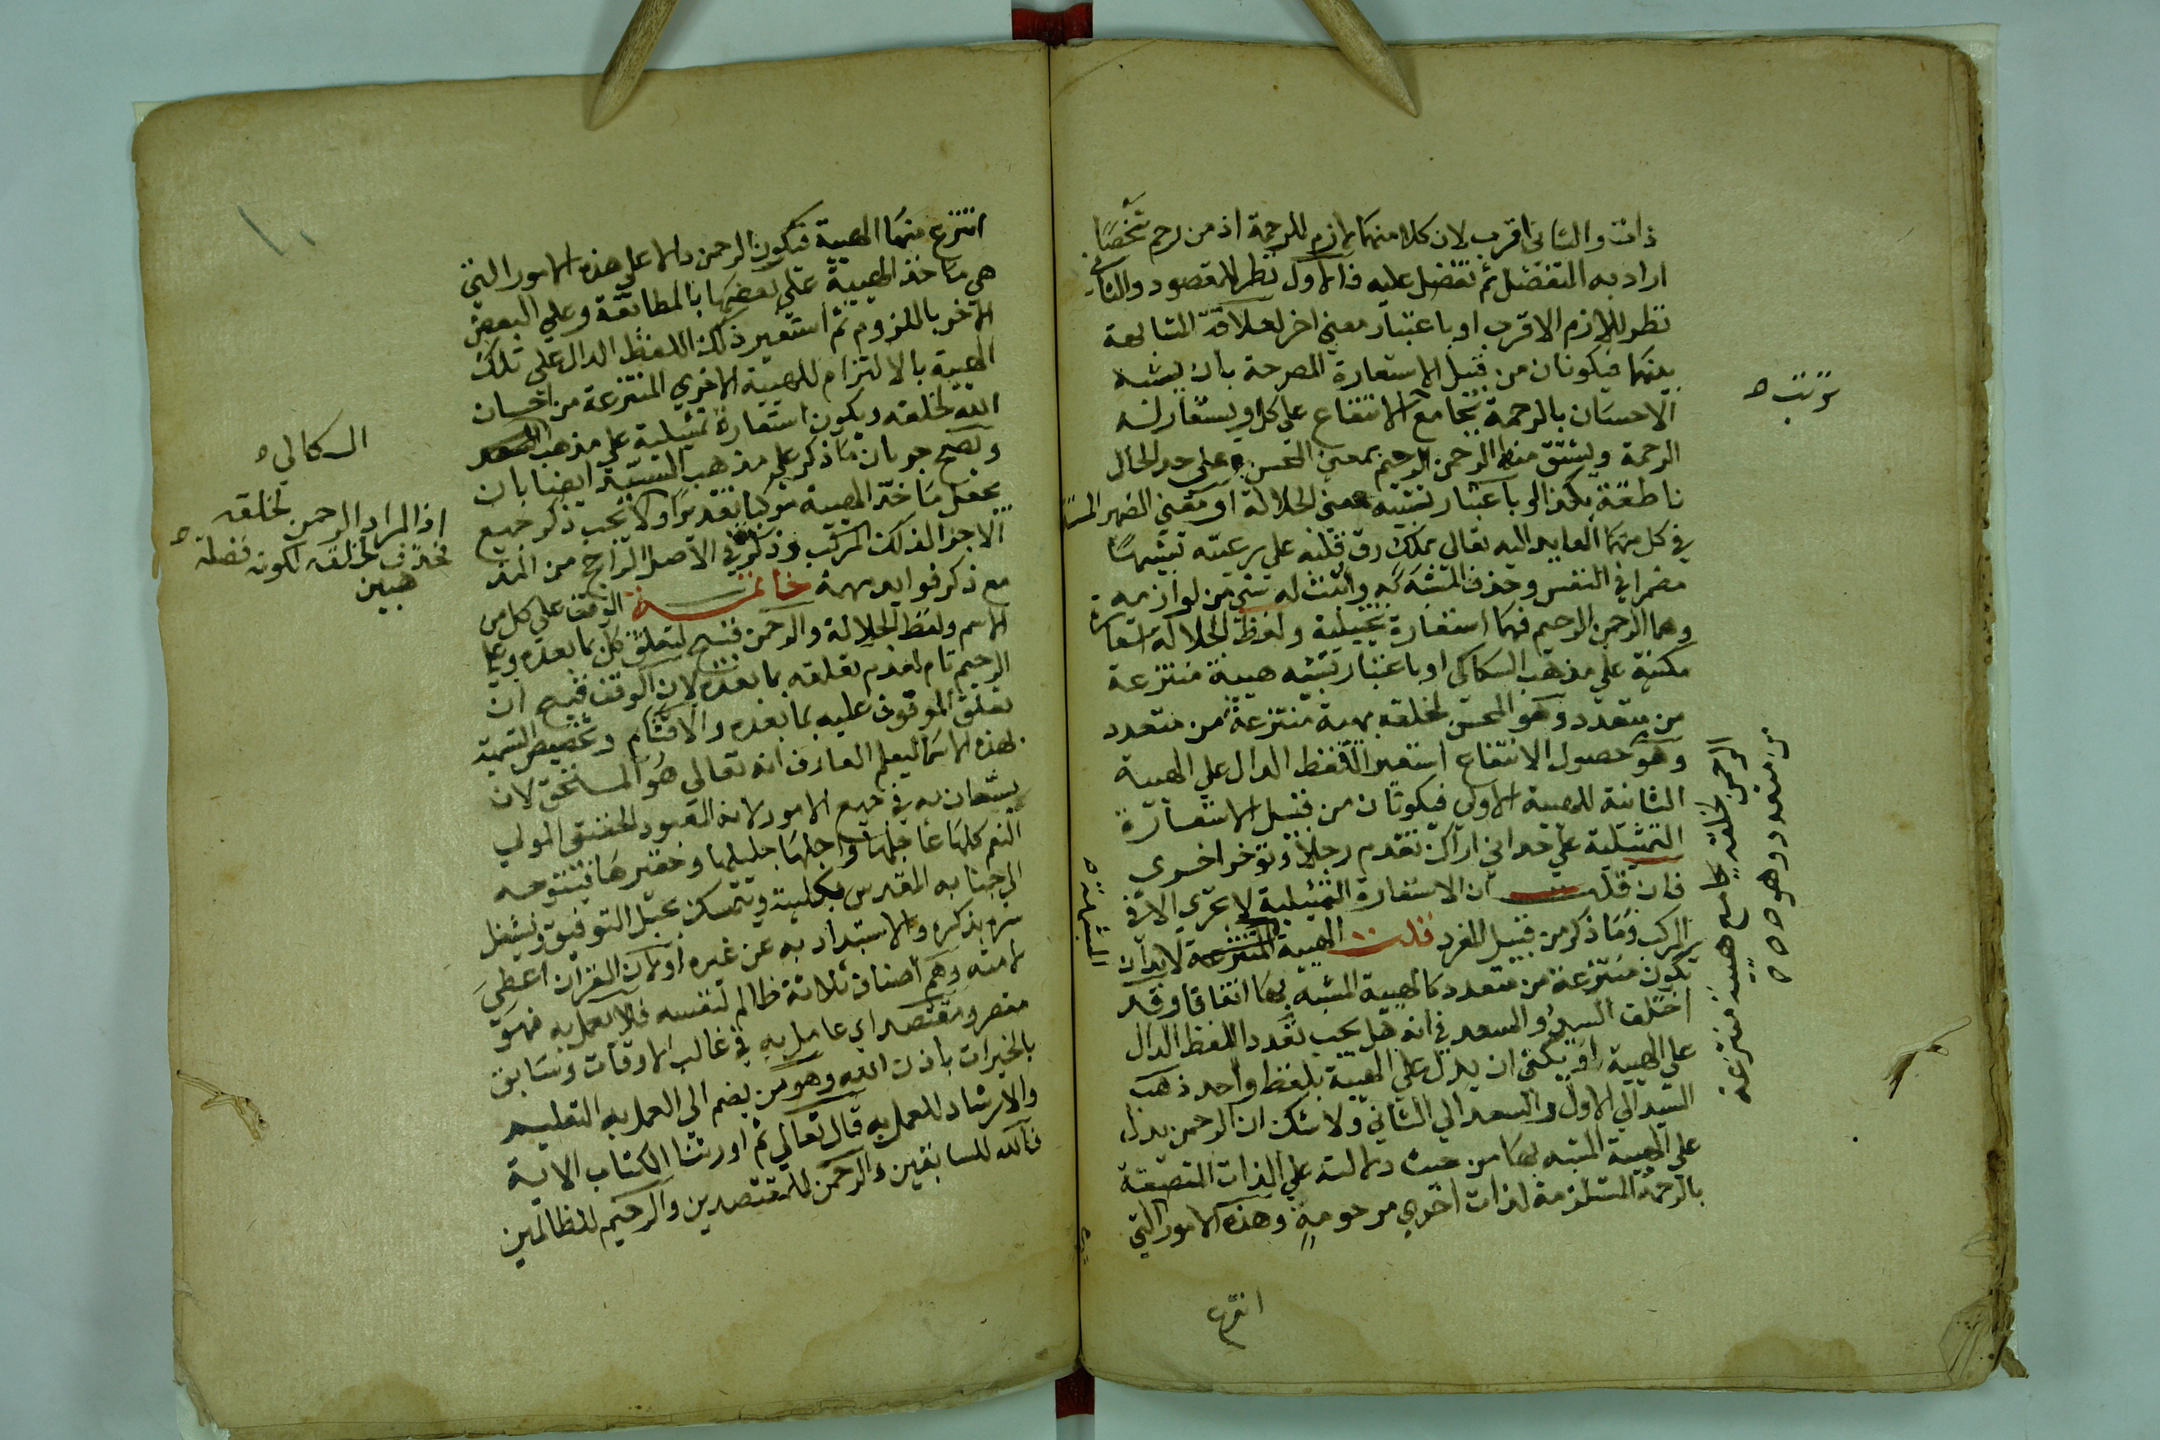 ذات والثاني اقرب لان كلا منهما لازم للرحمة اذ من رحم شخصا
اراد به التفضل ثم تفضل عليه فالاول نظر للمقصود والثاني
نظر للازم الاقرب او باعتبار معنى اخر لعلاقة المشابهة
بينهما فيكونان من قبيل الاستعارة المصرحة بان يشبه
الاحسان بالرحمة بجامع الانتفاع على كل ويستعار له
الرحمة ويشتق منها الرحمن الرحيم بمعنى المحسن على حد الحال
ناطقة بكذا او باعتبار تشبيه معنى الجلالة او معنى الضمير المستتر
في كل منهما العايد اليه تعالى بملك رق قلبه على رعيته تشبيها
مضمرا في النفس وحذف المشبه به واثبت له شي من لوازمه
وهما الرحمن الرحيم فهما استعارة تخييلية ولفظ الجلالة استعارة
مكنية على مذهب السكاكي او باعتبار تشبيه هيية منتزعة
من متعدد وهو المحسن لخلقه بهية منتزعة من متعدد
وهو حصول الانتفاع استعير اللفظ الدال على الهيية
الثانية للهيية الاولى فيكونان من قبيل الاستعارة
التمثيلية على حد اني اراك تقدم رجلا وتوخر اخرى
فان قلت ان الاستعارة التمثيلية لا تجري الا في
المركب وما ذكر من قبيل المفرد قلت الهيية المنتزعة لا بد ان
تكون منتزعة من متعدد كالهيية المشبه بها اتفاقا وقد
اختلف السيد والسعد في انه هل يجب تعدد اللفظ الدال
على الهيية او يكفي ان يدل على الهيية بلفظ واحد ذهب
السيد الى الاول والسعد الى الثاني ولا شك ان الرحمن يدل
على الهيية المشبه بها من حيث دلالته على الذات المتصفة
بالرحمة المستلزمة لذات اخرى مرحومة وهذه الامور التي
الرحمن لخلقه هيية منتزعة
من متعدد وهو
المشبهة
انتزع منها الهيية فيكون الرحمن دالا على هذه الامور التي
هي ماخذ الهيية على بعضها بالمطابقة وعلى البعض
الاخر باللزوم ثم استعير ذلك اللفظ الدال على تلك
الهيية بالالتزام للهيية الاخرى المنتزعة من احسان
الله لخلقه ويكون استعارة تمثيلية على مذهب السعد
ويصح جريان ما ذكر على مذهب السيد ايضا بان
يجعل ماخذ الهيية مركبا تقديرا ولا يجب ذكر جميع
الاجزا لذلك المركب وذكر في الاصل الراجح من المذ
مع ذكر فوايد مهمة خاتمة الوقف على كل من
الاسم ولفظ الجلالة والرحمن قبيح لتعلق كل بما بعده وعلى
الرحيم تام لعدم تعلقه بما بعده لان الوقف قبيح ان
تعلق الموقوف عليه بما بعده والا فتام وتخصيص التسمية
بهذه الاسما ليعلم العارف انه تعالى هو المستحق لان
يستعان به في جميع الامور لانه المعبود الحقيقي المولي
النعم كلها عاجلها واجلها جليلها وحقيرها فيتوجه
الى جنابه المقدس بكليته ويتمسك بحبل التوفيق ويشغل
سره بذكره والاستبداد به عن غيره او لان القران اعطي
لامته وهم اصناف ثلاثة ظالم لنفسه فلا يعمل به فهو
مقصر ومقتصد اي عامل به في غالب الاوقات وسابق
بالخيرات باذن الله وهو من يضم الى العمل به التعليم
والارشاد للعمل به قال تعالى ثم اورثنا الكتاب الاية
فالله للسابقين والرحمن للمقتصدين والرحيم للظالمين
اذ المراد الرحمن لخلقه
فحذف لخلقه لكونه فضلة